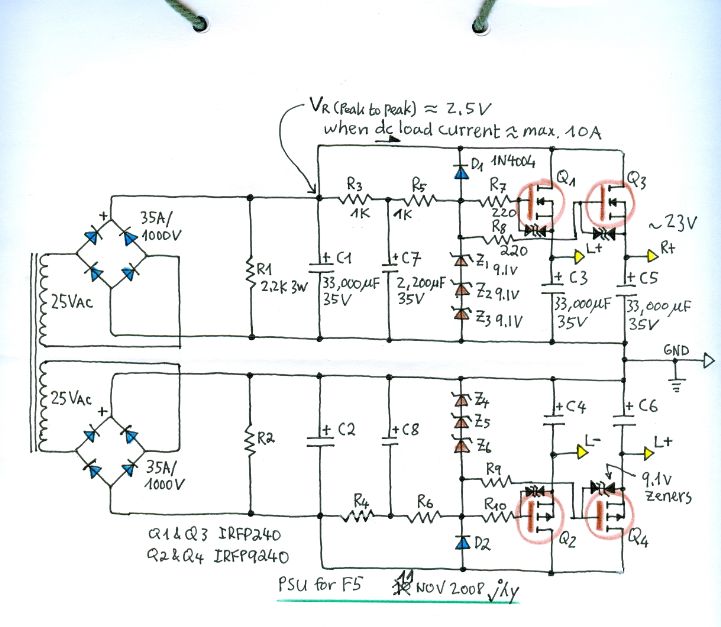 VR (Peak to peak) ≈ 2.5V
when dc load current ≈ max. 10A
D1 1N4004
Q1
Q3
+
35A/
1000V
R3
1K
R5
1K
R7
220
R8
220
~23V
L+
R+
25VAC
R1
2.2K 3W
+ C1
33,000µF
35V
+ C7
2,200µF
35V
Z1 9.1V
Z2 9.1V
Z3 9.1V
+ C3
33,000µF
35V
+ C5
33,000µF
35V
GND
25VAC
+
35A/
1000V
R2
+ C2
+ C8
Z4
Z5
Z6
+ C4
+ C6
L-
L+
R9
9.1V
zeners
R4
R6
R10
Q1 & Q3 IRFP240
Q2 & Q4 IRFP9240
D2
Q2
Q4
PSU for F5
11 NOV 2008